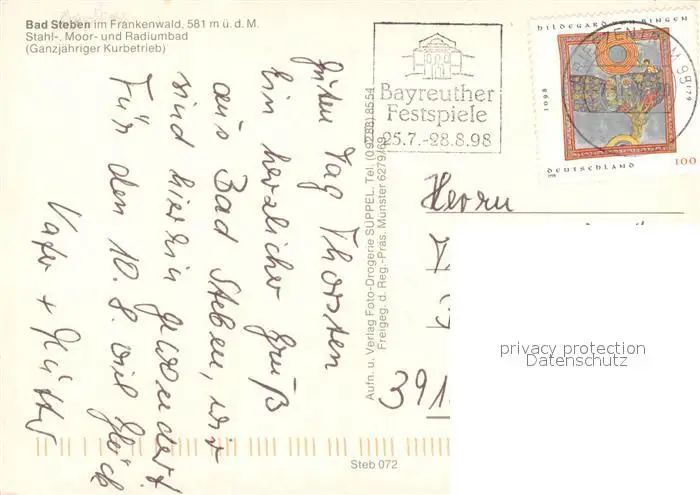 Bad Steben im Frankenwald, 581 m ü. d. M.
Stahl-, Moor- und Radiumbad
(Ganzjähriger Kurbetrieb)
Guten Tag Thorsten
Ein herzlicher Gruß
aus Bad Steben, wir
sind hierhin gewandert
Für den 10. 8 viel Glück
Vater + Mutter
Aufn. u. Verlag Foto-Drogerie SÜPPEL, Tel. (09288) 8554
Freigeg. d. Reg.-Präs. Münster 6279/69
Steb 072
Bayreuther
Festspiele
25.7.-28.8.98
BRIEFZENTRUM 95
HILDEGARD VON BINGEN
1098
1998
DEUTSCHLAND
100
Herrn
391
privacy protection
Datenschutz